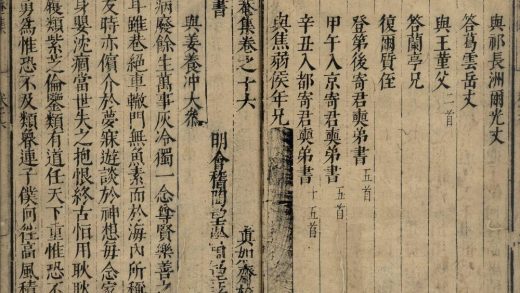 與祁長洲爾光丈
答葛雲岳丈
與王董父二首
答蘭亭兄
復爾質侄
登第後寄君奭弟書五首
甲午入京寄君奭弟書五首
辛丑入都寄君奭弟書十五首
與焦弱侯年兄
菴集卷之十六 真如齋校
明會稽
書
與姜養沖大叅
病廢餘生萬事灰冷獨一念尊賢樂善之
耳雖巷絕車轍門無魚素而於海內所稱
友時亦儐介於夢寐遊談於神想每念家
身嬰沈痼當世失之抱恨終古恒用耿耿
類紫芝之倫鑒類有道任天下重惟恐不
勇爲惟恐不及類魯連子僕向往高風積